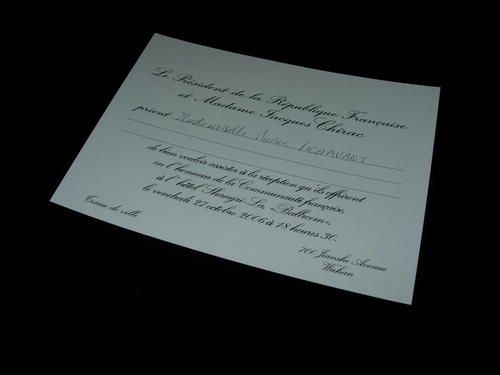 Le Président de la République Française
et Madame Jacques Chirac
prient Mademoiselle PICHAVANT
de bien vouloir assister à la réception qu'ils offriront
en l'honneur de la Communauté française,
à l'hôtel Shangri-La, «Ballroom»,
le vendredi 27 octobre 2006 à 18 heures 30.
Tenue de ville
700 Jianshe Avenue
Wuhan